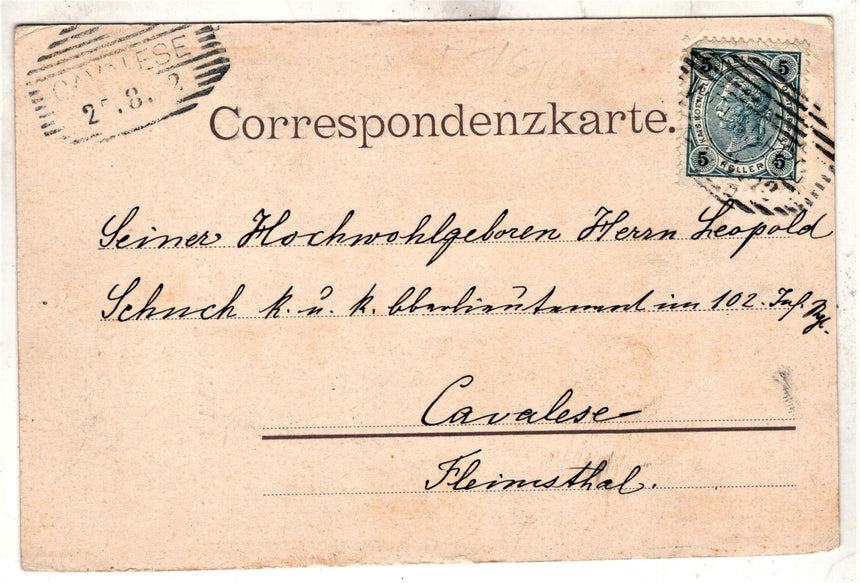 CAVALESE
2 .8. 2
5 5
5 HELLER 5
Correspondenzkarte.
Seiner Hochwohlgeboren Herrn Leopold
Schuch k. u. k. Oberlieutenant im 102. Inf. Rgt.
Cavalese
Fleimsthal.